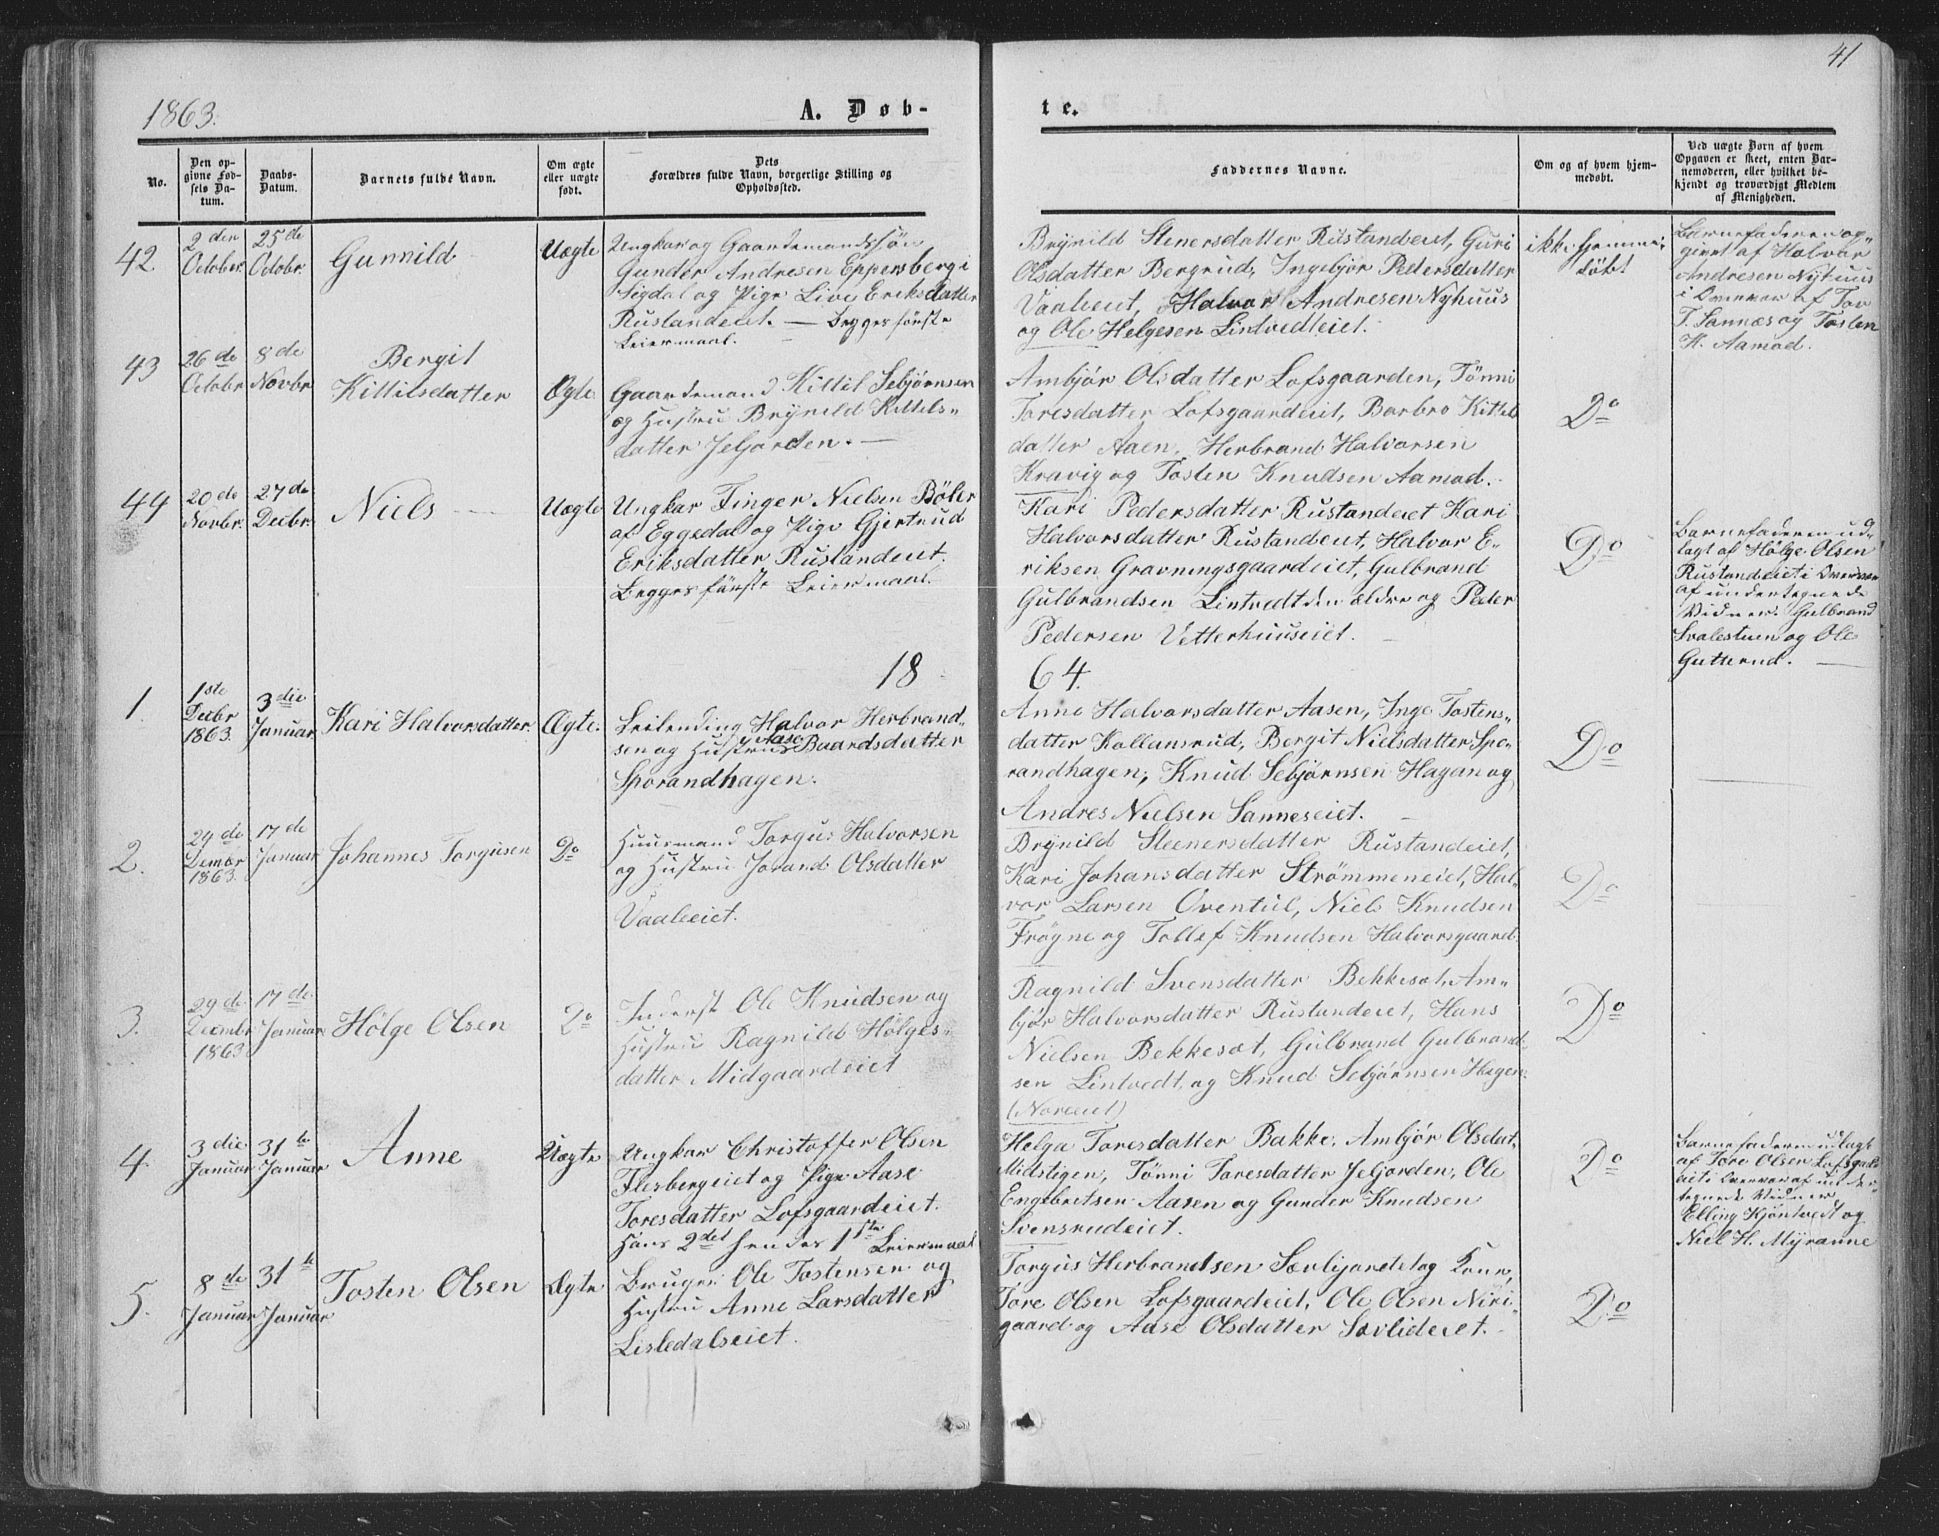 41
1863.
A. Døb-
te.
No.
Den op-
givne Fød-
sels Da-
tum.
Daabs-
Datum.
Barnets fulde Navn.
Om ægte
eller uægte
født.
Dets
Forældres fulde Navn, borgerlige Stilling og
Opholdssted.
Faddernes Navne.
Om og af hvem hjem-
medøbt.
Ved uægte Børn af hvem
Opgaven er skeet, enten Bar-
nemoderen, eller hvilket be-
kjendt og troværdigt Medlem
af Menigheden.
42
2den
October
25de
Octobr.
Gunnild
Uægte
Ungkar og Gaardemandssøn
Gunder Andresen Eppersberg i
Sigdal og Pige Live Eriksdatter
Rustandeiet. — Begges første
Leiermaal.
Brynild Stenersdatter Rustandeiet, Guri
Olsdatter Bergrud, Ingebjør Pedersdatter
Vaaleeiet, Halvor Andresen Nyhuus
og Ole Helgesen Lintvedteiet.
ikke hjemme-
døbt
Barnefaderen op-
givet af Halvor
Andresen Nyhuus
i Overvær af Tov
T. Sannes og Tosten
K. Aamod.
43
26de
Octobr
8de
Novbr
Bergit
Kittilsdatter
Ægte.
Gaardemand Kittil Sebjørnsen
og Hustru Brynild Kittels-
datter Jeljorden. —
Ambjør Olsdatter Lofsgaarden, Tønni
Toresdatter Lofsgaardeiet, Barbro Kittels
datter Aaen, Herbrand Halvorsen
Kravig og Tosten Knudsen Aamod.
Do
44
20de
Novbr.
27de
Decbr.
Niels
Uægte
Ungkar Finger Nielsen Bøler
af Eggedal og Pige Gjertrud
Eriksdatter Rustandeiet.
Begges første Leiermaal.
Kari Pedersdatter Rustandeiet Kari
Halvorsdatter Rustandeiet, Halvor E-
riksen Gravningsgaardeiet, Gulbrand
Gulbrandsen Lintvedt den ældre og Peder
Pedersen Vetterhuuseiet.
Do
Barnefaderen ud-
lagt af Hølge Olsen
Rustandeiet i Overvær
af undertegnede
Vidner. Gulbrand
Svalestuen og Ole
Gutterud.
18
64.
1.
1ste
Decbr
1863.
3die
Januar
Kari Halvorsdatter.
Ægte.
Leilending Halvor Herbrand-
sen og Hustru Aase Baardsdatter
Sporandhagen.
Anne Halvorsdatter Aasen, Inge Tostens-
datter Kollansrud, Bergit Nielsdatter Spo-
randhagen, Knud Sebjørnsen Hagan og
Andres Nielsen Sanneseiet.
Do
2.
24de
1863.
17de
Januar
Johannes Torgusen
Do
Huusmand Torgus Halvorsen
og Hustru Jorand Olsdatter
Vaaleeiet.
Brynild Steenersdatter Rustandeiet,
Kari Johansdatter Strømmeneiet, Hal-
vor Larsen Oventul, Niels Knudsen
Frøgne og Tollef Knudsen Halvorsgaard.
Do
3.
29de
Decmbr
1863
17de
Januar
Hølge Olsen
Do
Inderst Ole Knudsen og
Hustru Ragnild Hølges-
datter Midgaardeiet
Ragnild Svensdatter Bekkesæt, Am-
bjør Halvorsdatter Rustandeiet, Hans
Nielsen Bekkesæt, Gulbrand Gulbrand-
sen Lintvedt, og Knud Sebjørnsen Hagen
(Noreeiet)
Do
4.
3die
Januar
31te
Januar
Anne
Uægte
Ungkar Christoffer Olsen
Flesbergeiet og Pige Aase
Toresdatter Lofsgaardeiet.
Hans 2det hendes 1ste Leiermaal
Helga Toresdatter Bakke, Ambjør Olsdat.
Midstigen, Tønni Toresdatter Jeljorden, Ole
Engebretsen Aasen og Gunder Knudsen
Svensrudeiet.
Do
Barnefaderen udlagt
af Tore Olsen Lofsgaard-
eiet i Overvær af under-
tegnede Vidner
Elling Kjøntvedt og
Niel H. Myranne
5.
8de
Januar
31te
Januar
Tosten Olsen
Ægte
Bruger Ole Tostensen og
Hustru Anne Larsdatter
Lisledalseiet.
Torgus Herbrandsen Sævlijordet og Kone,
Tore Olsen Lofsgaardeiet, Ole Olsen Niri-
gaard og Aase Olsdatter Sævlideiet.
Do